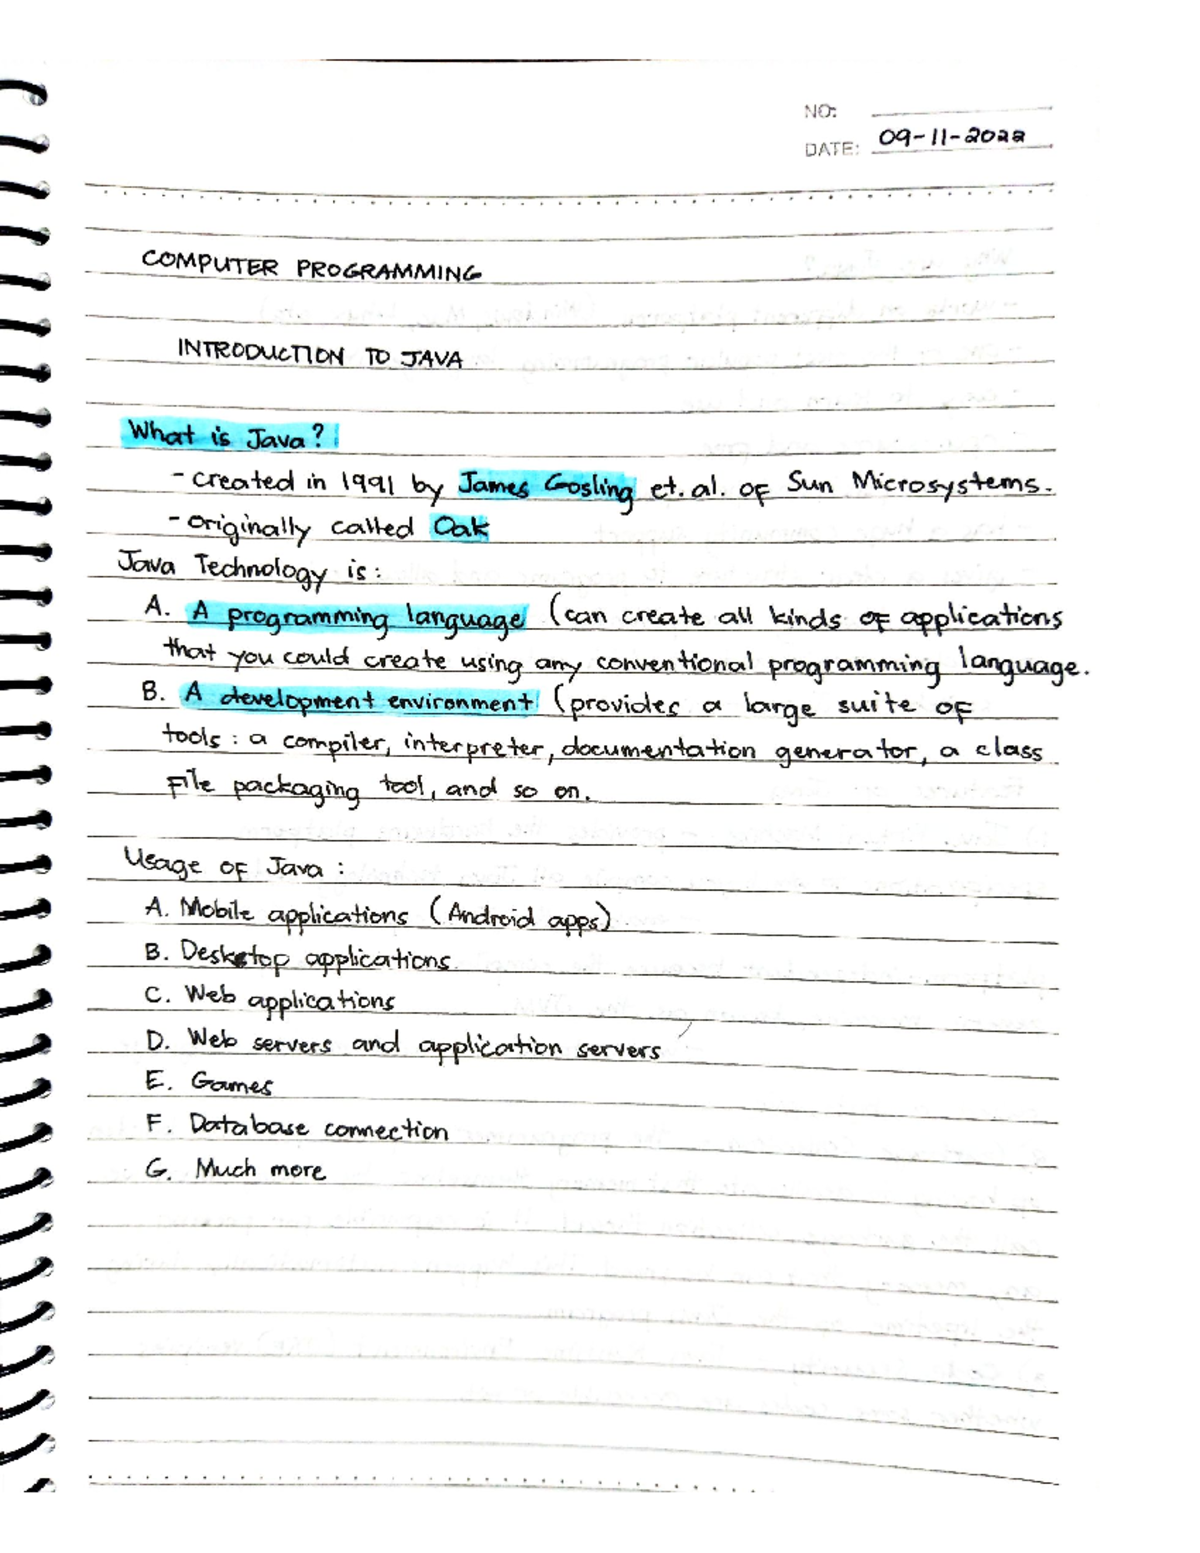 NO:
DATE: 09-11-2022
COMPUTER PROGRAMMING
INTRODUCTION TO JAVA
What is Java?
- created in 1991 by James Gosling et. al. of Sun Microsystems.
- originally called Oak
Java Technology is:
A. A programming language (can create all kinds of applications
that you could create using any conventional programming language.
B. A development environment (provides a large suite of
tools: a compiler, interpreter, documentation generator, a class
file packaging tool, and so on.
Usage of Java:
A. Mobile applications (Android apps)
B. Desktop applications
C. Web applications
D. Web servers and application servers
E. Games
F. Database connection
G. Much more